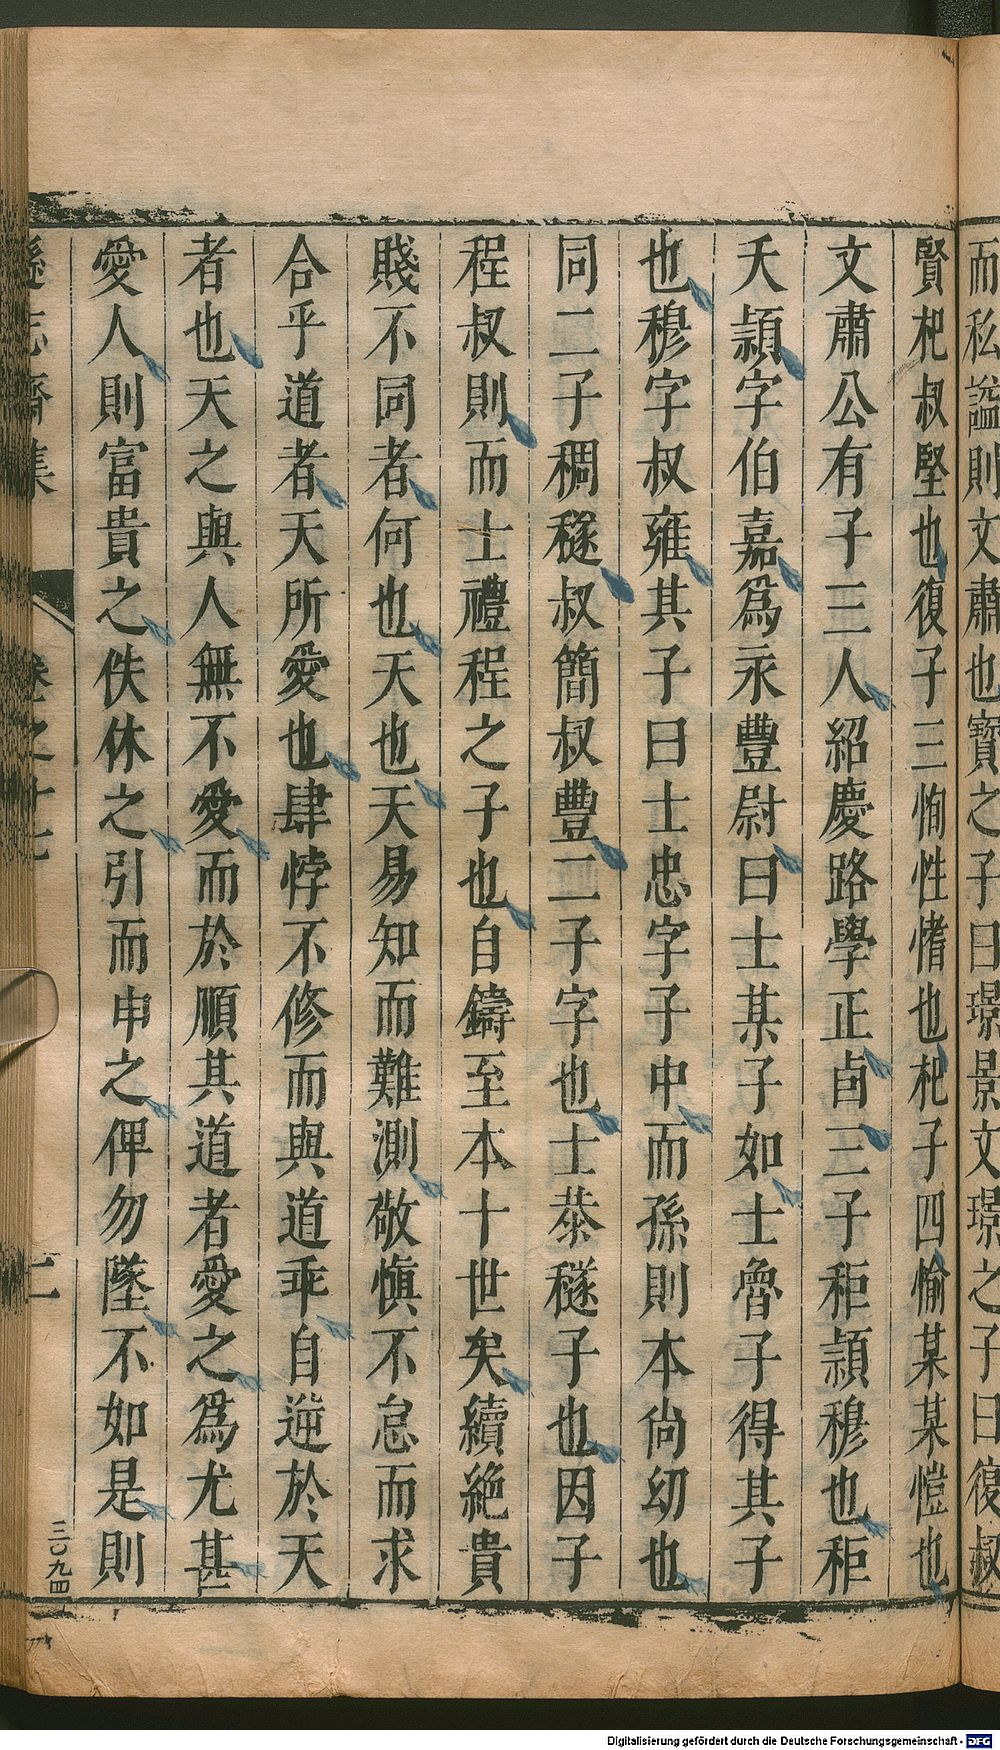 而私謚則文肅也寶之子曰璟景文璟之子曰復叔
賢杞叔堅也復子三恂性愭也杞子四愉某某愷也
文肅公有子三人紹慶路學正卣三子秬頴穆也秬
夭頴字伯嘉為永豐尉曰士某子如士魯子得其子
也穆字叔雍其子曰士忠字子中而孫則本尚幼也
同二子稠穟叔簡叔豐二子字也士恭穟子也因子
程叔則而士禮程之子也自鑄至本十世矣續絶貴
賤不同者何也天也天易知而難測敬慎不怠而求
合乎道者天所愛也肆悖不修而與道乖自逆於天
者也天之與人無不愛而於順其道者愛之為尤甚
愛人則富貴之佚休之引而申之俾勿墜不如是則
遜志齋集
卷之十七
二
三〇九四
Digitalisierung gefördert durch die Deutsche Forschungsgemeinschaft - DFG